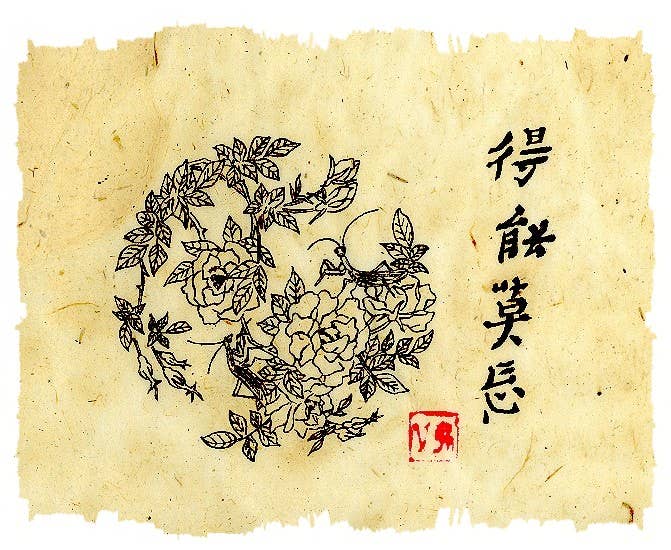 得能莫忘